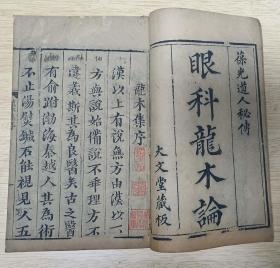 葆光道人秘傳
眼科龍木論
大文堂藏板
龍木集序
漢以上有說無方由漢以
方與說始備說不乖理方不
違義斯其為良醫矣古之醫
有俞跗渤海秦越人其為術
不止湯熨鍼石能視見以五